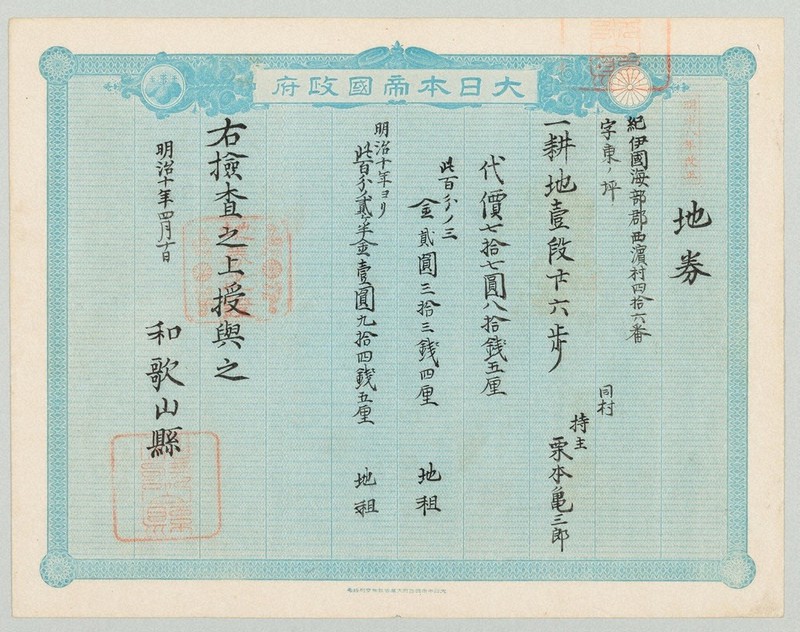 大日本帝國政府
地券
紀伊國海部郡西濵村四拾六番
字東ノ坪
一耕地壹段廿六歩
同村
持主 栗本亀三郎
代價七拾七圓八拾銭五厘
此百分ノ三
金貳圓三拾三銭四厘 地租
明治十年ヨリ
此百分ノ貳ヶ半金壹圓九拾四銭五厘 地租
右檢査之上授與之
明治十年四月十日
和歌山縣